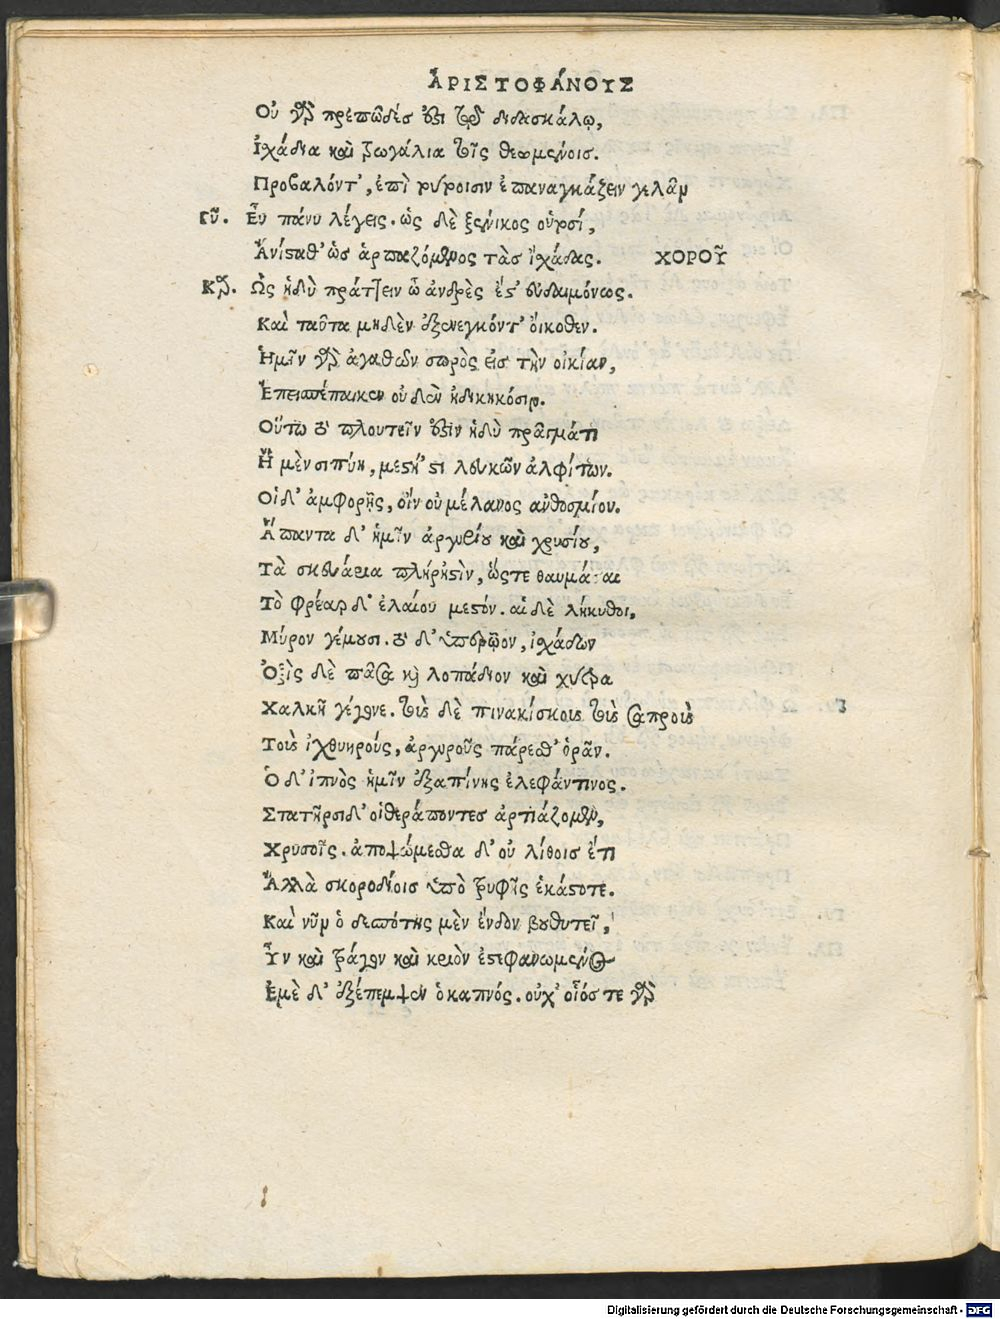 ἈΡΙΣΤΟΦΆΝΟΥΣ
Οὐ γὰρ πρεπῶδές ἐστι τῷ διδασκάλῳ,
Ἰχάδια καὶ τρωγάλια τοῖς θεωμένοισ.
Προβαλόντ', ἐπὶ τούτοισιν ἐπαναγκάζειν γελᾶν
Γῦ. Εὖ πάνυ λέγεις. ὡς δὲ ξένικος οὑτοσί,
Ἀνίσταθ' ὡσ ἁρπαζόμενος τὰσ ἰχάδας. ΧΟΡΟΥ͂
Καρ. Ὡς ἡδὺ πράττειν ὦ ἀνδρὲς ἐστ' εὐδαιμόνως.
Καὶ ταῦτα μηδὲν ἐξενεγκόντ' οἴκοθεν.
Ἡμῖν γὰρ ἀγαθῶν σωρὸς εἰσ τὴν οἰκίαν,
Ἐπεισπέπαικεν οὐδὲν ἠδικηκόσιν.
Οὕτω τὸ πλουτεῖν ἐστὶν ἡδὺ πρᾶγμάτι
Ἡ μὲν σιπύη, μεστή 'στι λευκῶν ἀλφίτων.
Οἱ δ' ἀμφορῆς, οἴνου μέλανος ἀνθοσμίου.
Ἅπαντα δ' ἡμῖν ἀργυρίου καὶ χρυσίου,
Τὰ σκευάρια πλήρη 'στὶν, ὥστε θαυμάσαι
Τὸ φρέαρ δ' ἐλαίου μεστόν. αἱ δὲ λήκυθοι,
Μύρον γέμουσι. τὸ δ' ὑπερῶον, ἰχάδων
Ὀξὶς δὲ πᾶσα καὶ λοπάδιον καὶ χύτρα
Χαλκῆ γέγονε. τοὺς δὲ πινακίσκους τοὺς σαπροὺς
Τοὺς ἰχθυηρούς, ἀργυροῦς πάρεσθ' ὁρᾶν.
Ὁ δ' ἰπνὸς ἡμῖν ἐξαπίνης ἐλεφάντινος.
Στατῆρσι δ' οἱ θεράποντεσ ἀρτιάζομεν,
Χρυσοῖς. ἀποψώμεσθα δ' οὐ λίθοισ ἔτι
Ἀλλὰ σκοροδίοισ ὑπὸ τρυφῆς ἑκάστοτε.
Καὶ νῦν ὁ δεσπότης μὲν ἔνδον βουθυτεῖ,
Ὗν καὶ τράγον καὶ κριὸν ἐστεφανωμένος
Ἐμὲ δ' ἐξέπεμψεν ὁ καπνός. οὐχ' οἷός τε γὰρ
Digitalisierung gefördert durch die Deutsche Forschungsgemeinschaft - DFG